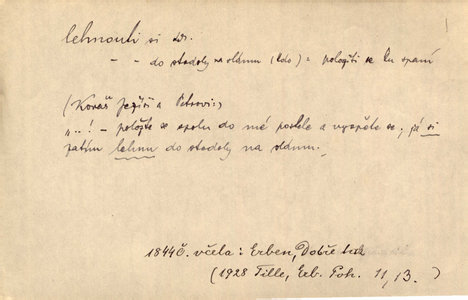 lehnouti si
– – do stodoly na slámu (kdo) = položiti se ku spaní
(Kovář Ježíši a Petrovi:)
„..! – položte se spolu do mé postele a vyspěte se; já si
zatím lehnu do stodoly na slámu."
1844 Č. včela : Erben, Dobře tak
(1928 Tille, Erb. Poh. 11, 13. )